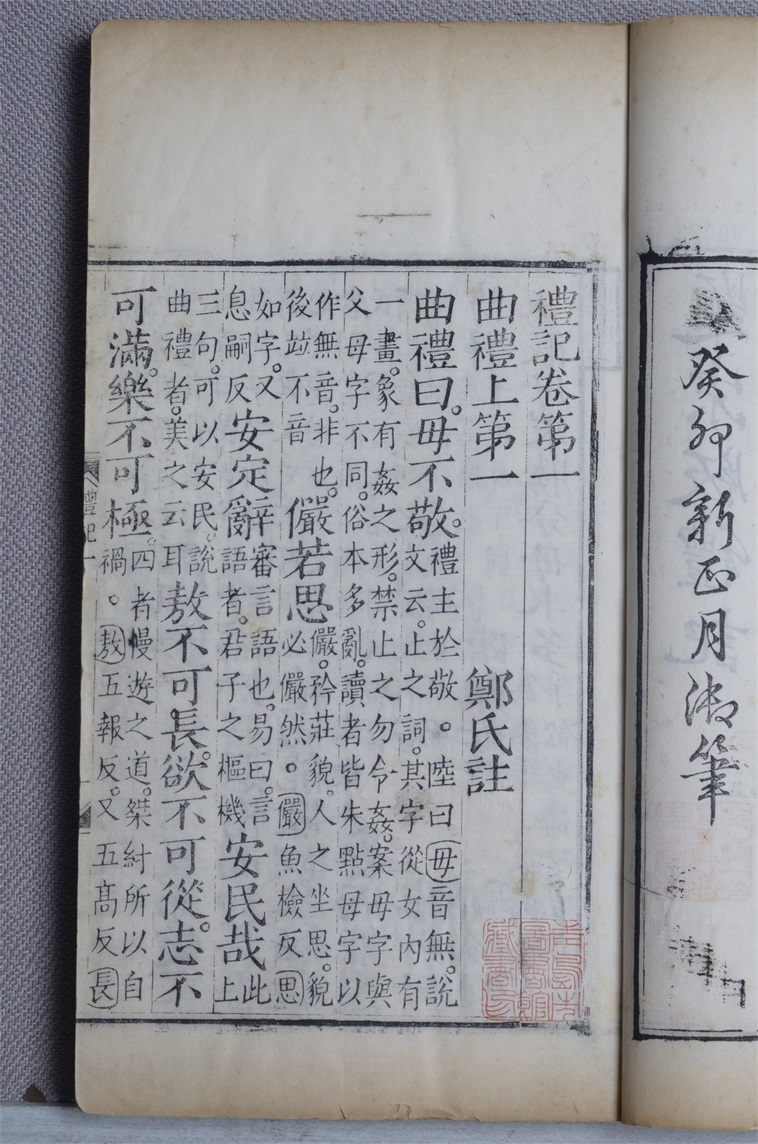 癸卯新正月御筆
禮記卷第一
曲禮上第一 鄭氏註
曲禮曰。毋不敬。禮主於敬。陸曰毋音無。說文云。止之詞。其字從女內有
一畫。象有姦之形。禁止之勿令姦。案毋字與父母字不同。俗本多亂。讀者皆朱點母字以
作無音。非也。後竝不音儼若思儼。矜莊貌。人之坐思。貌必儼然。儼魚檢反思
如字。又息嗣反安定辭審言語也。易曰。言語者。君子之樞機安民哉此上
三句。可以安民。說曲禮者。美之云耳敖不可長。欲不可從。志不
可滿。樂不可極。四者慢遊之道。桀紂所以自禍。敖五報反。又五高反長
禮記一